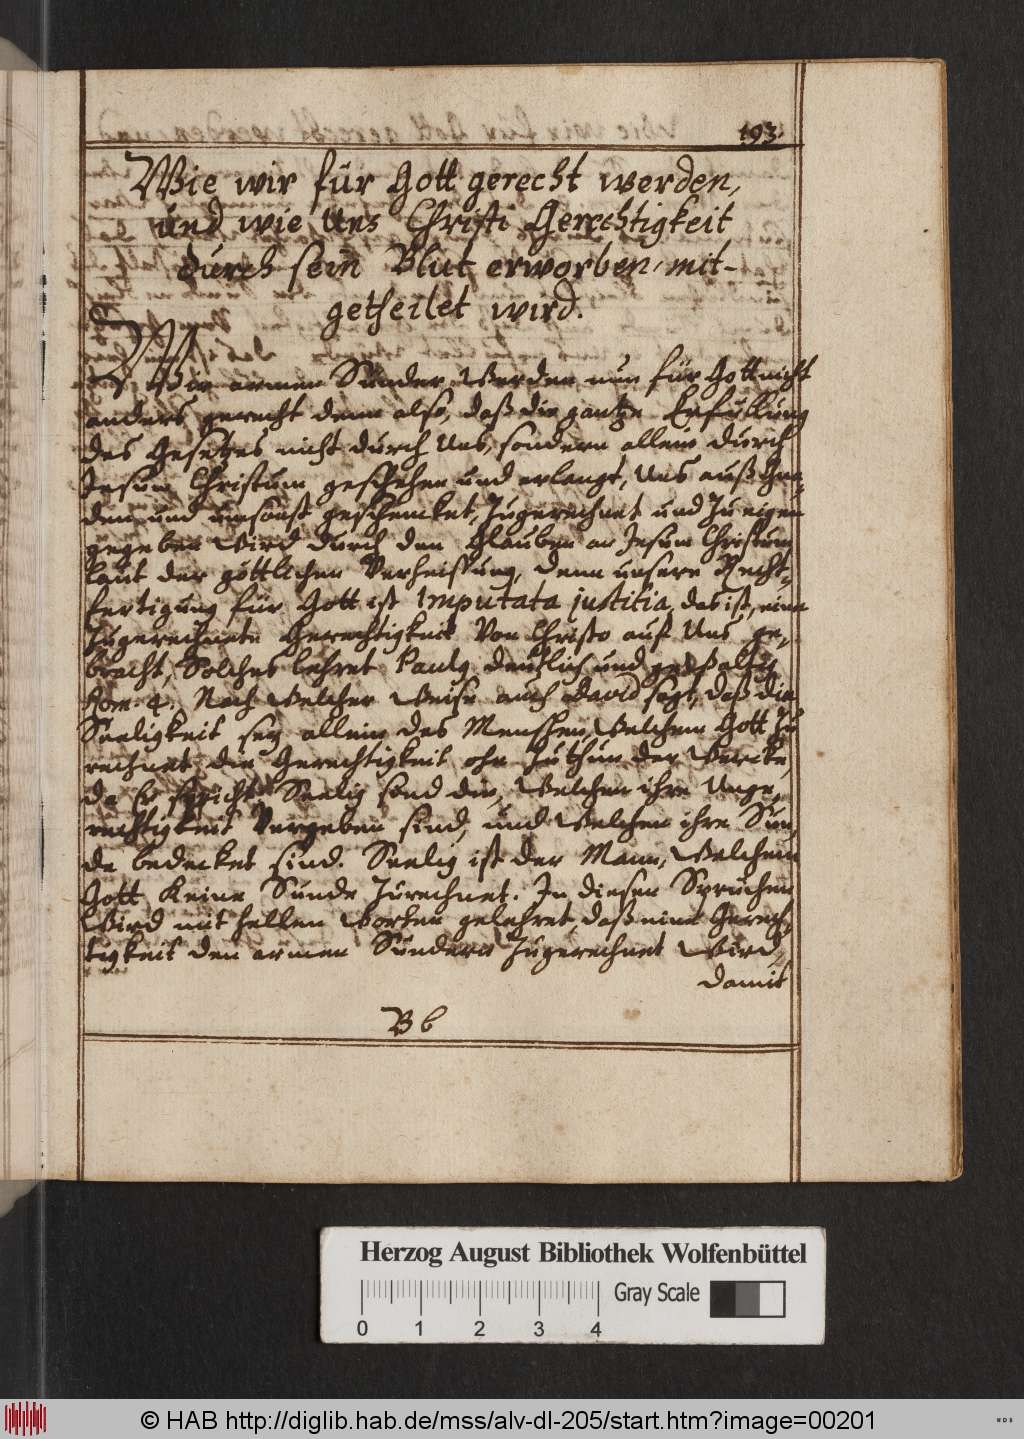 193.
Wie wir für Gott gerecht werden,
und wie Uns Christi Gerechtigkeit
durch sein Blut erworben, mit-
getheilet wird.
Wir armen Sünder Werden nun für Gott nicht
anders gerecht denn also, daß die gantze Erfüllung
des Gesetzes nicht durch Uns, sondern allein durch
Jesum Christum geschehen und erlangt, Uns auß Gna-
den und umsonst geschencket, Zugerechnet und Zu eigen
gegeben Wird durch den Glauben an Jesum Christum
laut der göttlichen Verheissung, denn unsere Recht-
fertigung für Gott ist Imputata justitia, das ist, eine
Zugerechnete Gerechtigkeit Von Christo auf Uns ge-
bracht, Solches lehret Paulus deutlich und
Rom: 4. Nach Welcher Weise auch David sagt, daß die
Seeligkeit sey allein des Menschen, Welchem Gott Zu
rechnet die Gerechtigkeit ohn Zuthun der Wercke,
da Er spricht: Seelig sind die, Welchen ihre Unge-
rechtigkeit Vergeben sind, und Welchen ihre Sün-
de bedecket sind. Seelig ist der Mann, Welchem
Gott Keine Sünde Zurechnet. In diesen Sprüchen
Wird mit hellen Worten gelehret, daß eine Gerech-
tigkeit den armen Sündern Zugerechnet Wird,
damit
Bb
Herzog August Bibliothek Wolfenbüttel
Gray Scale
0 1 2 3 4
© HAB http://diglib.hab.de/mss/alv-dl-205/start.htm?image=00201